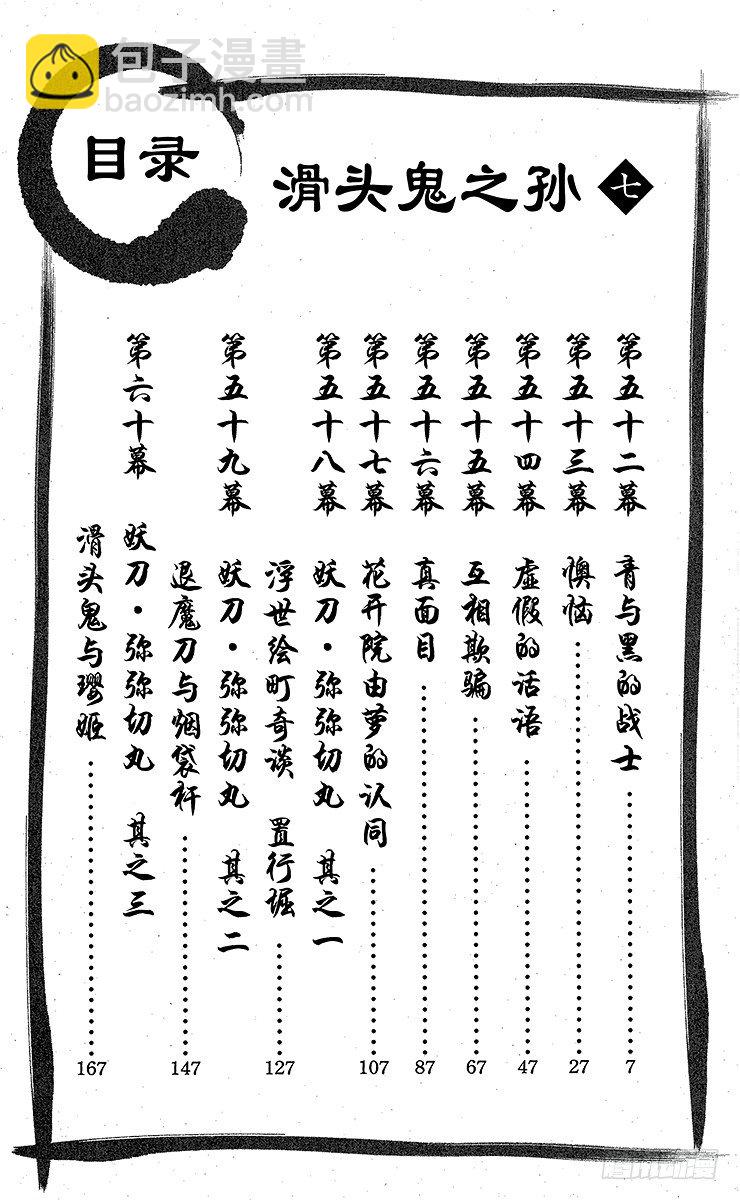 包子漫畫
baozimh.com
目录
滑头鬼之孙 七
第五十二幕 青与黑的战士 7
第五十三幕 懊恼 27
第五十四幕 虚假的话语 47
第五十五幕 互相欺骗 67
第五十六幕 真面目 87
第五十七幕 花开院由萝的认同 107
第五十八幕 妖刀·弥弥切丸 其之一
浮世绘町奇谈 置行堀 127
第五十九幕 妖刀·弥弥切丸 其之二
退魔刀与烟袋杆 147
第六十幕 妖刀·弥弥切丸 其之三
滑头鬼与璎姬 167